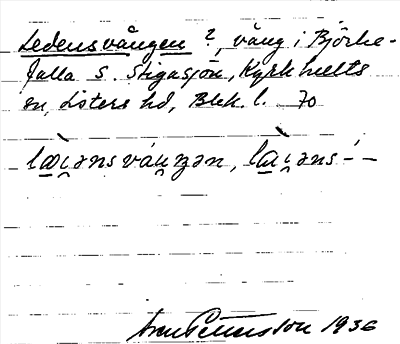 Ledensvången?, vång i Björke-
falla S. Stigasjön, Kyrkhults
sn, Listers hd, Blek. l. 70
lœ̀i̯ənsváu̯ŋən, lài̯əns-´-
Pettersson 1936